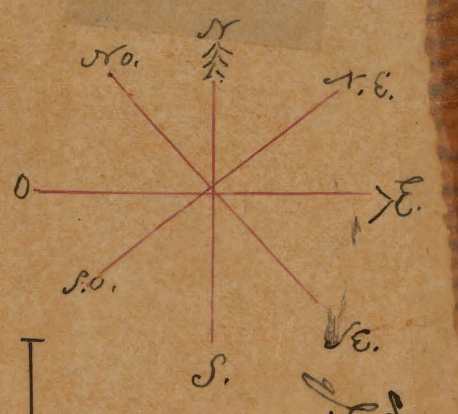 N
No.
N.E.
O
E.
S.O.
S.E.
S.